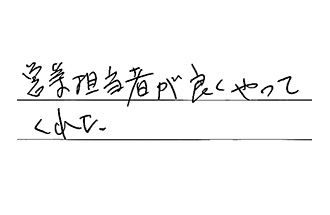 営業担当者が良くやって
くれた.